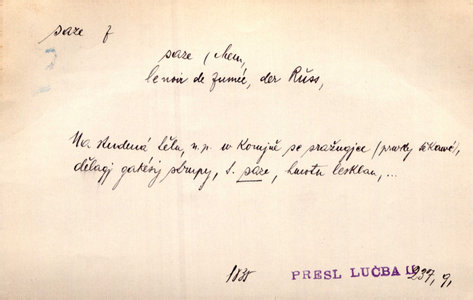 saze f
saze (chem,
le noir de fumée, der Ruß,
Na studená těla, n. p. w Komjně se sražugjce (prwky těkawé),
dělagj gakésy strupy, t. saze, hmotu lesklau, ...
1835 PRESL LUČBA I 237, 9,